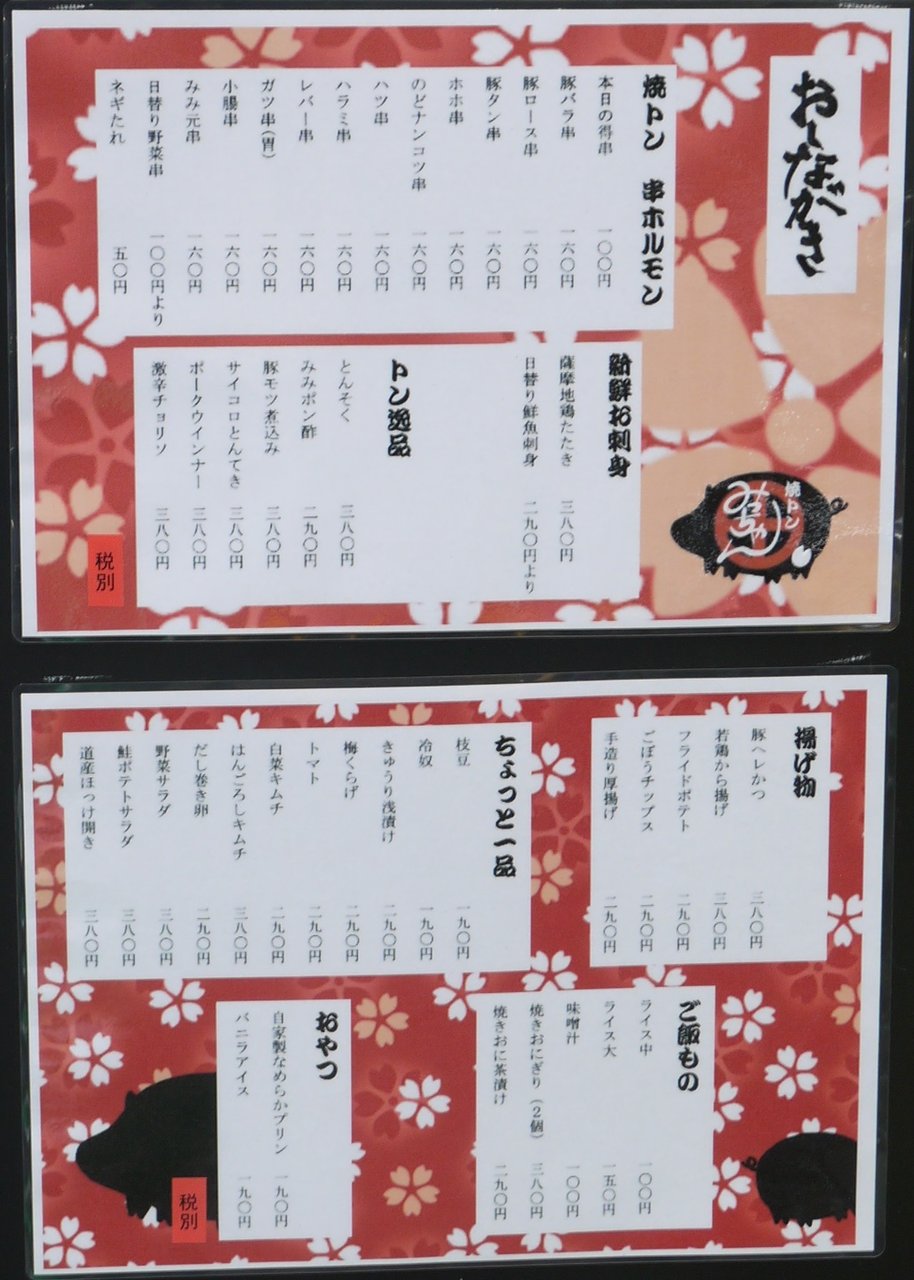 おーなべがき
焼トン
みっちゃん
焼トン 串ホルモン
本日の得串 一〇〇円
豚バラ串 一六〇円
豚ロース串 一六〇円
豚タン串 一六〇円
ホホ串 一六〇円
のどナンコツ串 一六〇円
ハツ串 一六〇円
ハラミ串 一六〇円
レバー串 一六〇円
ガツ串(胃) 一六〇円
小腸串 一六〇円
みみ元串 一六〇円
日替り野菜串 一〇〇円より
ネギたれ 五〇円
新鮮お刺身
薩摩地鶏たたき 三八〇円
日替り鮮魚刺身 二九〇円より
トン逸品
とんそく 三八〇円
みみポン酢 二九〇円
豚モツ煮込み 三八〇円
サイコロとんてき 三八〇円
ポークウインナー 三八〇円
激辛チョリソ 三八〇円
税別
揚げ物
豚ヘレかつ 三八〇円
若鶏から揚げ 三八〇円
フライドポテト 二九〇円
ごぼうチップス 二九〇円
手造り厚揚げ 二九〇円
ちょっと一品
枝豆 一九〇円
冷奴 一九〇円
きゅうり浅漬け 二九〇円
梅くらげ 二九〇円
トマト 二九〇円
白菜キムチ 二九〇円
はんごろしキムチ 三八〇円
だし巻き卵 二九〇円
野菜サラダ 三八〇円
鮭ポテトサラダ 三八〇円
道産ほっけ開き 三八〇円
ご飯もの
ライス中 一〇〇円
ライス大 一五〇円
味噌汁 一〇〇円
焼きおにぎり(2個) 三八〇円
焼きおに茶漬け 二九〇円
おやつ
自家製なめらかプリン 一九〇円
バニラアイス 一九〇円
税別